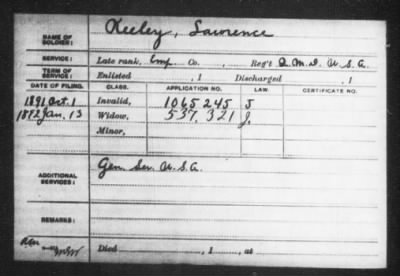 NAME OF SOLDIER: Keeley, Lawrence
SERVICE: Late rank, Emp Co. , Reg't Q. M. D. U. S. A.
TERM OF SERVICE: Enlisted , 1 Discharged , 1
DATE OF FILING. CLASS. APPLICATION NO. LAW. CERTIFICATE NO.
1891 Oct. 1 Invalid, 1065245 J
1892 Jan. 13 Widow, 537,321 J.
Minor,
ADDITIONAL SERVICES: Gen. Ser. U. S. A.
REMARKS:
Died , 1 , at